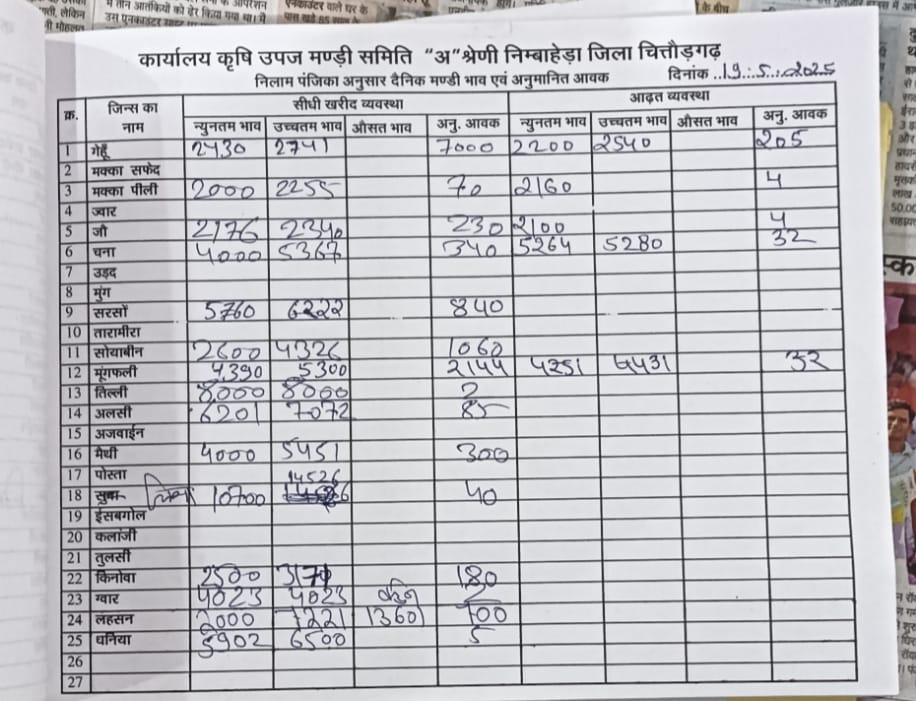 कार्यालय कृषि उपज मण्डी समिति “अ” श्रेणी निम्बाहेड़ा जिला चित्तौड़गढ़
निलाम पंजिका अनुसार दैनिक मण्डी भाव एवं अनुमानित आवक दिनांक ..19..5..:2025
क्र. जिन्स का नाम सीधी खरीद व्यवस्था आढ़त व्यवस्था
न्युनतम भाव उच्चतम भाव औसत भाव अनु. आवक न्युनतम भाव उच्चतम भाव औसत भाव अनु. आवक
1 गेहूँ 2430 2741 7000 2200 2540 205
2 मक्का सफेद
3 मक्का पीली 2000 2255 70 2160 4
4 ज्वार
5 जौ 2176 2340 230 2100 4
6 चना 4000 5367 340 5264 5280 32
7 उड़द
8 मुंग
9 सरसों 5760 6222 840
10 तारामीरा
11 सोयाबीन 2600 4326 1060
12 मूंगफली 4390 5300 2144 4251 5431 32
13 तिल्ली 8000 8000 2
14 अलसी 6201 7072 85
15 अजवाईन
16 मैथी 4000 5451 300
17 पोस्ता
18 सुवा 10700 14526 40
19 ईसबगोल
20 कलांजी
21 तुलसी
22 किनोवा 2500 3171 180
23 ग्वार 4023 4023 2
24 लहसन 2000 7221 13601 700
25 धनिया 5902 6500 5
26
27